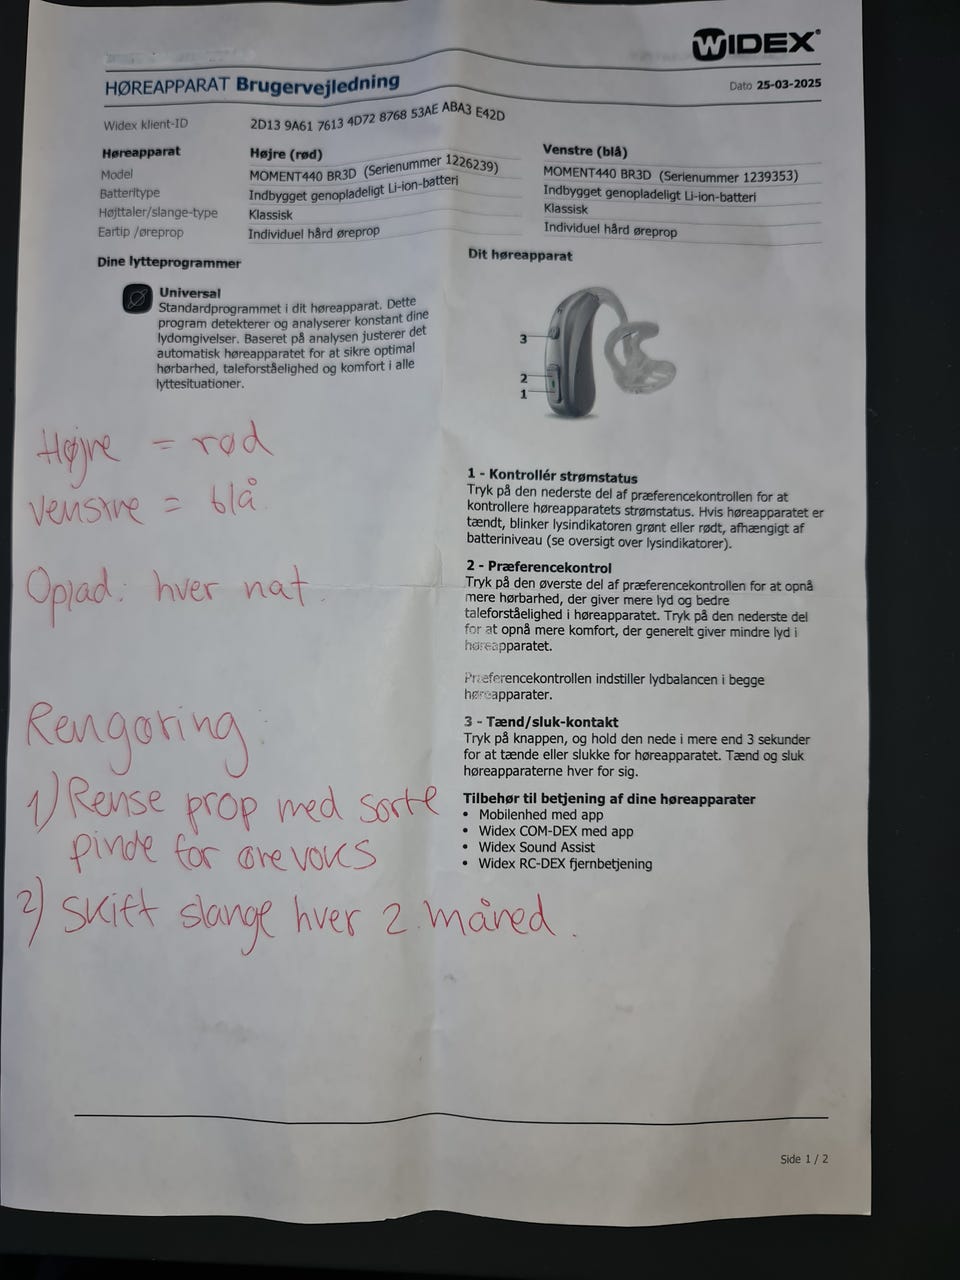 WIDEX
HØREAPPARAT Brugervejledning
Dato 25-03-2025
Widex klient-ID 2D13 9A61 7613 4D72 8768 53AE ABA3 E42D
Høreapparat Højre (rød) Venstre (blå)
Model MOMENT440 BR3D (Serienummer 1226239) MOMENT440 BR3D (Serienummer 1239353)
Batteritype Indbygget genopladeligt Li-ion-batteri Indbygget genopladeligt Li-ion-batteri
Højttaler/slange-type Klassisk Klassisk
Eartip /øreprop Individuel hård øreprop Individuel hård øreprop
Dine lytteprogrammer
Universal
Standardprogrammet i dit høreapparat. Dette
program detekterer og analyserer konstant dine
lydomgivelser. Baseret på analysen justerer det
automatisk høreapparatet for at sikre optimal
hørbarhed, taleforståelighed og komfort i alle
lyttesituationer.
Højre = rød
Venstre = blå
Oplad: hver nat.
Rengøring:
1) Rense prop med sorte
pinde for ørevoks
2) Skift slange hver 2. måned.
Dit høreapparat
3
2
1
1 - Kontrollér strømstatus
Tryk på den nederste del af præferencekontrollen for at
kontrollere høreapparatets strømstatus. Hvis høreapparatet er
tændt, blinker lysindikatoren grønt eller rødt, afhængigt af
batteriniveau (se oversigt over lysindikatorer).
2 - Præferencekontrol
Tryk på den øverste del af præferencekontrollen for at opnå
mere hørbarhed, der giver mere lyd og bedre
taleforståelighed i høreapparatet. Tryk på den nederste del
for at opnå mere komfort, der generelt giver mindre lyd i
høreapparatet.
Præferencekontrollen indstiller lydbalancen i begge
høreapparater.
3 - Tænd/sluk-kontakt
Tryk på knappen, og hold den nede i mere end 3 sekunder
for at tænde eller slukke for høreapparatet. Tænd og sluk
høreapparaterne hver for sig.
Tilbehør til betjening af dine høreapparater
• Mobilenhed med app
• Widex COM-DEX med app
• Widex Sound Assist
• Widex RC-DEX fjernbetjening
Side 1 / 2